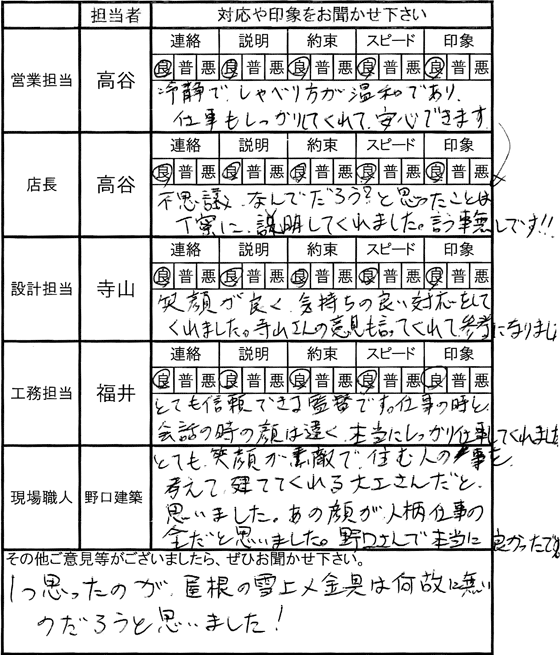 担当者 対応や印象をお聞かせ下さい
営業担当 高谷
連絡 説明 約束 スピード 印象
良 普 悪 良 普 悪 良 普 悪 良 普 悪 良 普 悪
冷静で、しゃべり方が温和であり、
仕事もしっかりしてくれて、安心できます
店長 高谷
連絡 説明 約束 スピード 印象
良 普 悪 良 普 悪 良 普 悪 良 普 悪 良 普 悪
不思議、なんでだろう?と思ったことは
丁寧に、説明してくれました。言う事無しです!!
設計担当 寺山
連絡 説明 約束 スピード 印象
良 普 悪 良 普 悪 良 普 悪 良 普 悪 良 普 悪
笑顔が良く、気持ちの良い対応をして
くれました。寺山さんの意見も言ってくれて、参考になりまし
工務担当 福井
連絡 説明 約束 スピード 印象
良 普 悪 良 普 悪 良 普 悪 良 普 悪 良 普 悪
とても信頼できる監督です。仕事の時と、
会話の時の顔は違く、本当にしっかり仕事してくれまし
現場職人 野口建築
とても、笑顔が素敵で、住む人の事を、
考えて、建ててくれる大工さんだと、
思いました。あの顔が、人柄、仕事の
全だと思いました。野口さんで本当に良かったです
その他ご意見等がございましたら、ぜひお聞かせ下さい。
1つ思ったのが、屋根の雪止メ金具は何故に無い
のだろうと思いました!